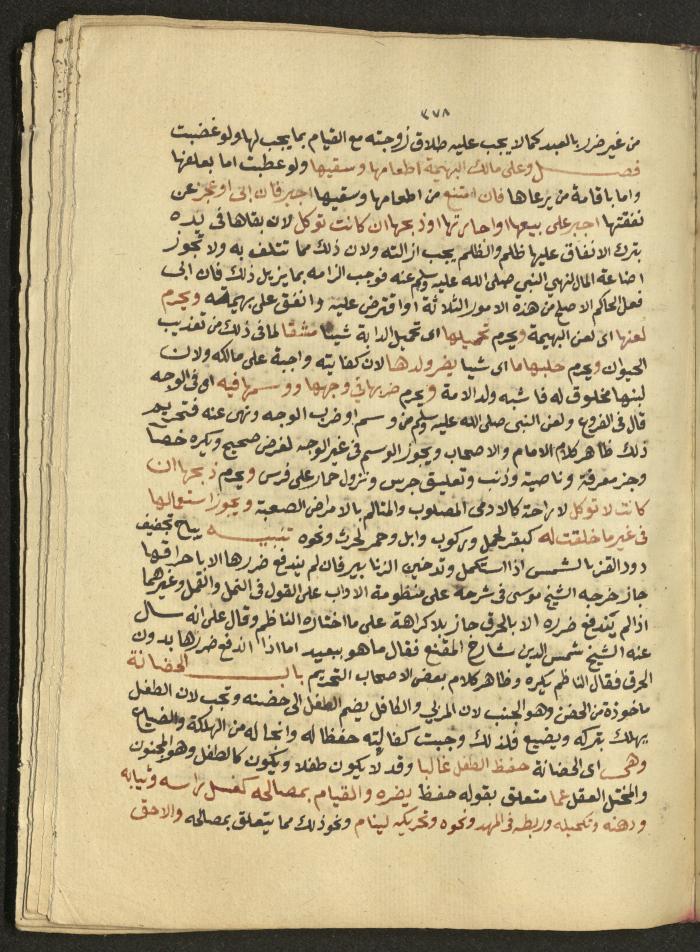 ٣٧٨
من غير ضرر بالعبد كما لا يجب عليه طلاق زوجته مع القيام بما يجب لها ولو غضبت
فصل وعلى مالك البهيمة اطعامها وسقيها ولو عطبت اما بعلفها
واما باقامة من يرعاها فان امتنع من اطعامها وسقيها اجبر فان ابى او عجز عن
نفقتها اجبر على بيعها او اجارتها او ذبحها ان كانت توكل لان بقاها في يده
بترك الانفاق عليها ظلم والظلم يجب ازالته ولان ذلك مما تتلف به ولا تجوز
اضاعة المال لنهي النبي صلى الله عليه وسلم عنه فوجب الزامه بما يزيل ذلك فان ابى
فعل الحاكم الاصلح من هذه الامور الثلاثة او اقترض عليه وانفق على بهيمته ويحرم
لعنها اى لعن البهيمة ويحرم تحميلها اى تحميل الدابة شيئا مشقا لما فى ذلك من تعذيب
الحيوان ويحرم حلبها ما اى شيا يضر ولدها لان كفايته واجبة على مالكه ولان
لبنها مخلوق له فاشبه ولد الامة ويحرم ضربها في وجهها ووسمها فيه اى فى الوجه
قال فى الفروع ولعن النبى صلى الله عليه وسلم من وسم او ضرب الوجه ونهى عنه فتحريم
ذلك ظاهر كلام الامام والاصحاب ويجوز الوسم فى غير الوجه لغرض صحيح ويكره خصا
وجز معرفة وناصية وذنب وتعليق جرس ونزول حمار على فرس ويحرم ذبحها ان
كانت لا توكل لاراحة كالادمى المصلوب والمتالم بالامراض الصعبة ويجوز استعمالها
فى غير ما خلقت له كبقر لحمل وركوب وابل وحمر لحرث ونحوه تنبيه يباح تجفيف
دود القز بالشمس اذا استكمل وتدخين الزنابير فان لم يندفع ضررها الا باحراقها
جاز خرجه الشيخ موسى فى شرحه على منظومة الاداب على القول فى النمل والقمل وغيرهما
اذا لم يندفع ضرره الا بالحرق جاز بلا كراهة على ما اختاره الناظم وقال على انه سال
عنه الشيخ شمس الدين شارح المقنع فقال ما هو ببعيد اما اذا اندفع ضررها بدون
الحرق فقال الناظم يكره وظاهر كلام بعض الاصحاب التحريم باب الحضانة
ماخوذة من الحضن وهو الجنب لان المربي والكافل يضم الطفل الى حضنه وتجب لان الطفل
يهلك بتركه ويضيع فلذلك وجبت كفالته حفظا له وانجا له من الهلكة والضياع
وهى اى الحضانة حفظ الطفل غالبا وقد لا يكون طفلا ويكون كالطفل وهو المجنون
والمختل العقل عما متعلق بقوله حفظ يضره والقيام بمصالحه كغسل راسه وثيابه
ودهنه وتكحيله وربطه فى المهد ونحوه وتحريكه لينام ونحو ذلك مما يتعلق بمصالحه والاحق